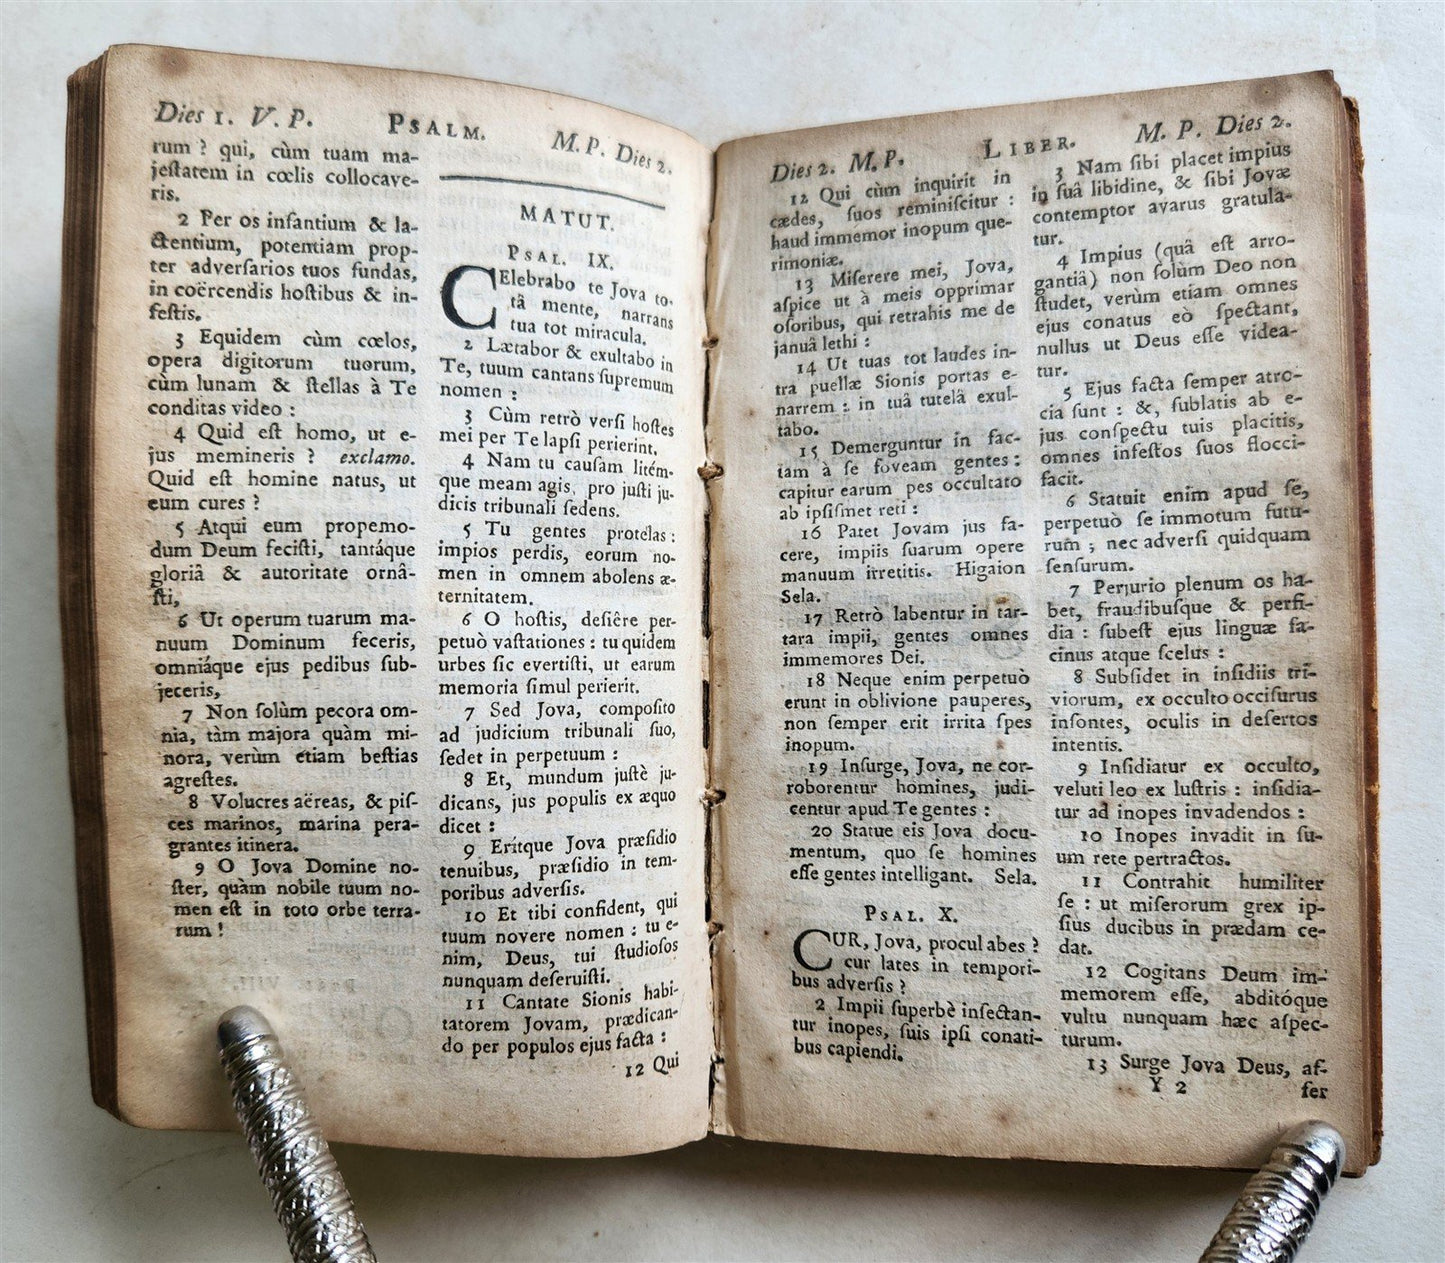 Dies 1. V. P. PSALM. M. P. Dies 2.
rum ? qui, cùm tuam ma-
jeſtatem in cœlis collocave-
ris.
2 Per os infantium & la-
ctentium, potentiam prop-
ter adverſarios tuos fundas,
in coërcendis hoſtibus & in-
feſtis.
3 Equidem cùm cœlos,
opera digitorum tuorum,
cùm lunam & ſtellas à Te
conditas video :
4 Quid eſt homo, ut e-
jus memineris ? exclamo.
Quid eſt homine natus, ut
eum cures ?
5 Atqui eum propemo-
dum Deum feciſti, tantáque
gloriâ & autoritate ornâ-
ſti,
6 Ut operum tuarum ma-
nuum Dominum feceris,
omniáque ejus pedibus ſub-
jeceris,
7 Non ſolùm pecora om-
nia, tàm majora quàm mi-
nora, verùm etiam beſtias
agreſtes.
8 Volucres aëreas, & piſ-
ces marinos, marina pera-
grantes itinera.
9 O Jova Domine no-
ſter, quàm nobile tuum no-
men eſt in toto orbe terra-
rum !
MATUT.
PSAL. IX.
CElebrabo te Jova to-
tâ mente, narrans
tua tot miracula.
2 Lætabor & exultabo in
Te, tuum cantans ſupremum
nomen :
3 Cùm retrò verſi hoſtes
mei per Te lapſi perierint,
4 Nam tu cauſam litém-
que meam agis, pro juſti ju-
dicis tribunali ſedens.
5 Tu gentes protelas :
impios perdis, eorum no-
men in omnem abolens æ-
ternitatem.
6 O hoſtis, deſiêre per-
petuò vaſtationes : tu quidem
urbes ſic evertiſti, ut earum
memoria ſimul perierit.
7 Sed Jova, compoſito
ad judicium tribunali ſuo,
ſedet in perpetuum :
8 Et, mundum juſtè ju-
dicans, jus populis ex æquo
dicet :
9 Eritque Jova præſidio
tenuibus, præſidio in tem-
poribus adverſis.
10 Et tibi confident, qui
tuum novere nomen : tu e-
nim, Deus, tui ſtudioſos
nunquam deſeruiſti.
11 Cantate Sionis habi-
tatorem Jovam, prædican-
do per populos ejus facta :
12 Qui
Dies 2. M. P. LIBER. M. P. Dies 2.
12 Qui cùm inquirit in
cædes, ſuos reminiſcitur :
haud immemor inopum que-
rimoniæ.
13 Miſerere mei, Jova,
aſpice ut à meis opprimar
oſoribus, qui retrahis me de
januâ lethi :
14 Ut tuas tot laudes in-
tra puellæ Sionis portas e-
narrem : in tuâ tutelâ exul-
tabo.
15 Demerguntur in fac-
tam à ſe foveam gentes :
capitur earum pes occultato
ab ipſiſmet reti :
16 Patet Jovam jus fa-
cere, impiis ſuarum opere
manuum irretitis. Higaion
Sela.
17 Retrò labentur in tar-
tara impii, gentes omnes
immemores Dei.
18 Neque enim perpetuò
erunt in oblivione pauperes,
non ſemper erit irrita ſpes
inopum.
19 Inſurge, Jova, ne cor-
roborentur homines, judi-
centur apud Te gentes :
20 Statue eis Jova docu-
mentum, quo ſe homines
eſſe gentes intelligant. Sela.
PSAL. X.
CUR, Jova, procul abes ?
cur lates in tempori-
bus adverſis ?
2 Impii ſuperbè inſectan-
tur inopes, ſuis ipſi conati-
bus capiendi.
3 Nam ſibi placet impius
in ſuâ libidine, & ſibi Jovæ
contemptor avarus gratula-
tur.
4 Impius (quâ eſt arro-
gantiâ) non ſolùm Deo non
ſtudet, verùm etiam omnes
ejus conatus eò ſpectant,
nullus ut Deus eſſe videa-
tur.
5 Ejus facta ſemper atro-
cia ſunt : &, ſublatis ab e-
jus conſpectu tuis placitis,
omnes infeſtos ſuos flocci-
facit.
6 Statuit enim apud ſe,
perpetuò ſe immotum futu-
rum ; nec adverſi quidquam
ſenſurum.
7 Perjurio plenum os ha-
bet, fraudibuſque & perfi-
dia : ſubeſt ejus linguæ fa-
cinus atque ſcelus :
8 Subſidet in inſidiis tri-
viorum, ex occulto occiſurus
inſontes, oculis in deſertos
intentis.
9 Inſidiatur ex occulto,
veluti leo ex luſtris : inſidia-
tur ad inopes invadendos :
10 Inopes invadit in ſu-
um rete pertractos.
11 Contrahit humiliter
ſe : ut miſerorum grex ip-
ſiùs ducibus in prædam ce-
dat.
12 Cogitans Deum im-
memorem eſſe, abditóque
vultu nunquam hæc aſpec-
turum.
13 Surge Jova Deus, af-
Y 2 fer